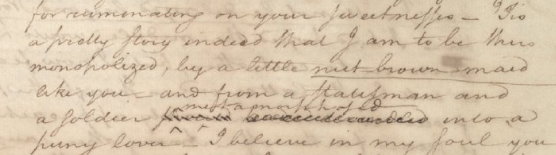 for ruminating on your sweetnesses – 'Tis
a pretty story indeed that I am to be thus
monopolized, by a little nut brown maid
like you – and from a statesman and
a soldier metamorphosed into a
puny lover – I believe in my soul you